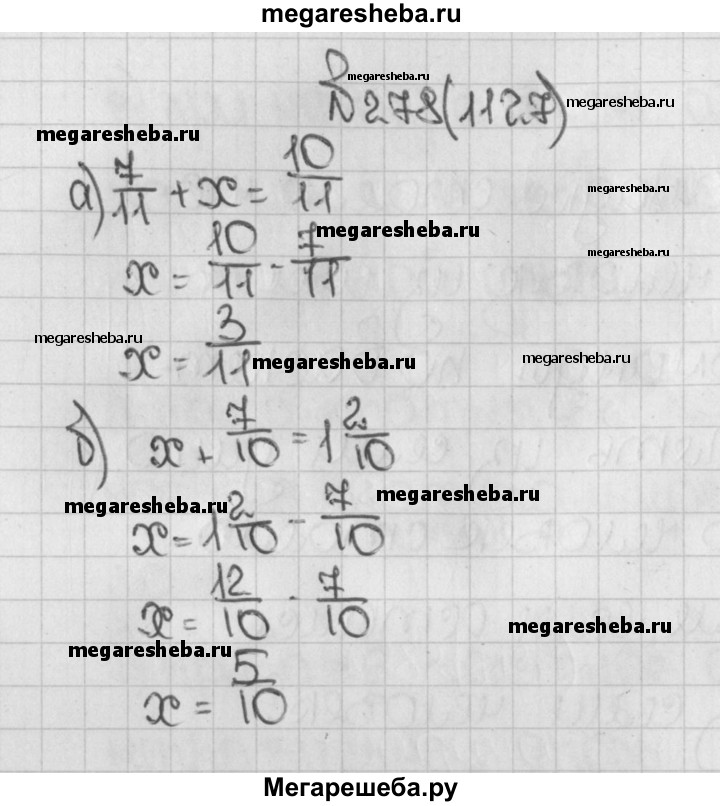 megaresheba.ru
megaresheba.ru
№ 278 (1127) megaresheba.ru
megaresheba.ru
а) 7/11 + x = 10/11 megaresheba.ru
megaresheba.ru
x = 10/11 - 7/11 megaresheba.ru
megaresheba.ru
x = 3/11 megaresheba.ru megaresheba.ru
б) x + 7/10 = 1 2/10
megaresheba.ru megaresheba.ru
x = 1 2/10 - 7/10
x = 12/10 - 7/10 megaresheba.ru
megaresheba.ru
x = 5/10
Мегарешеба.ру